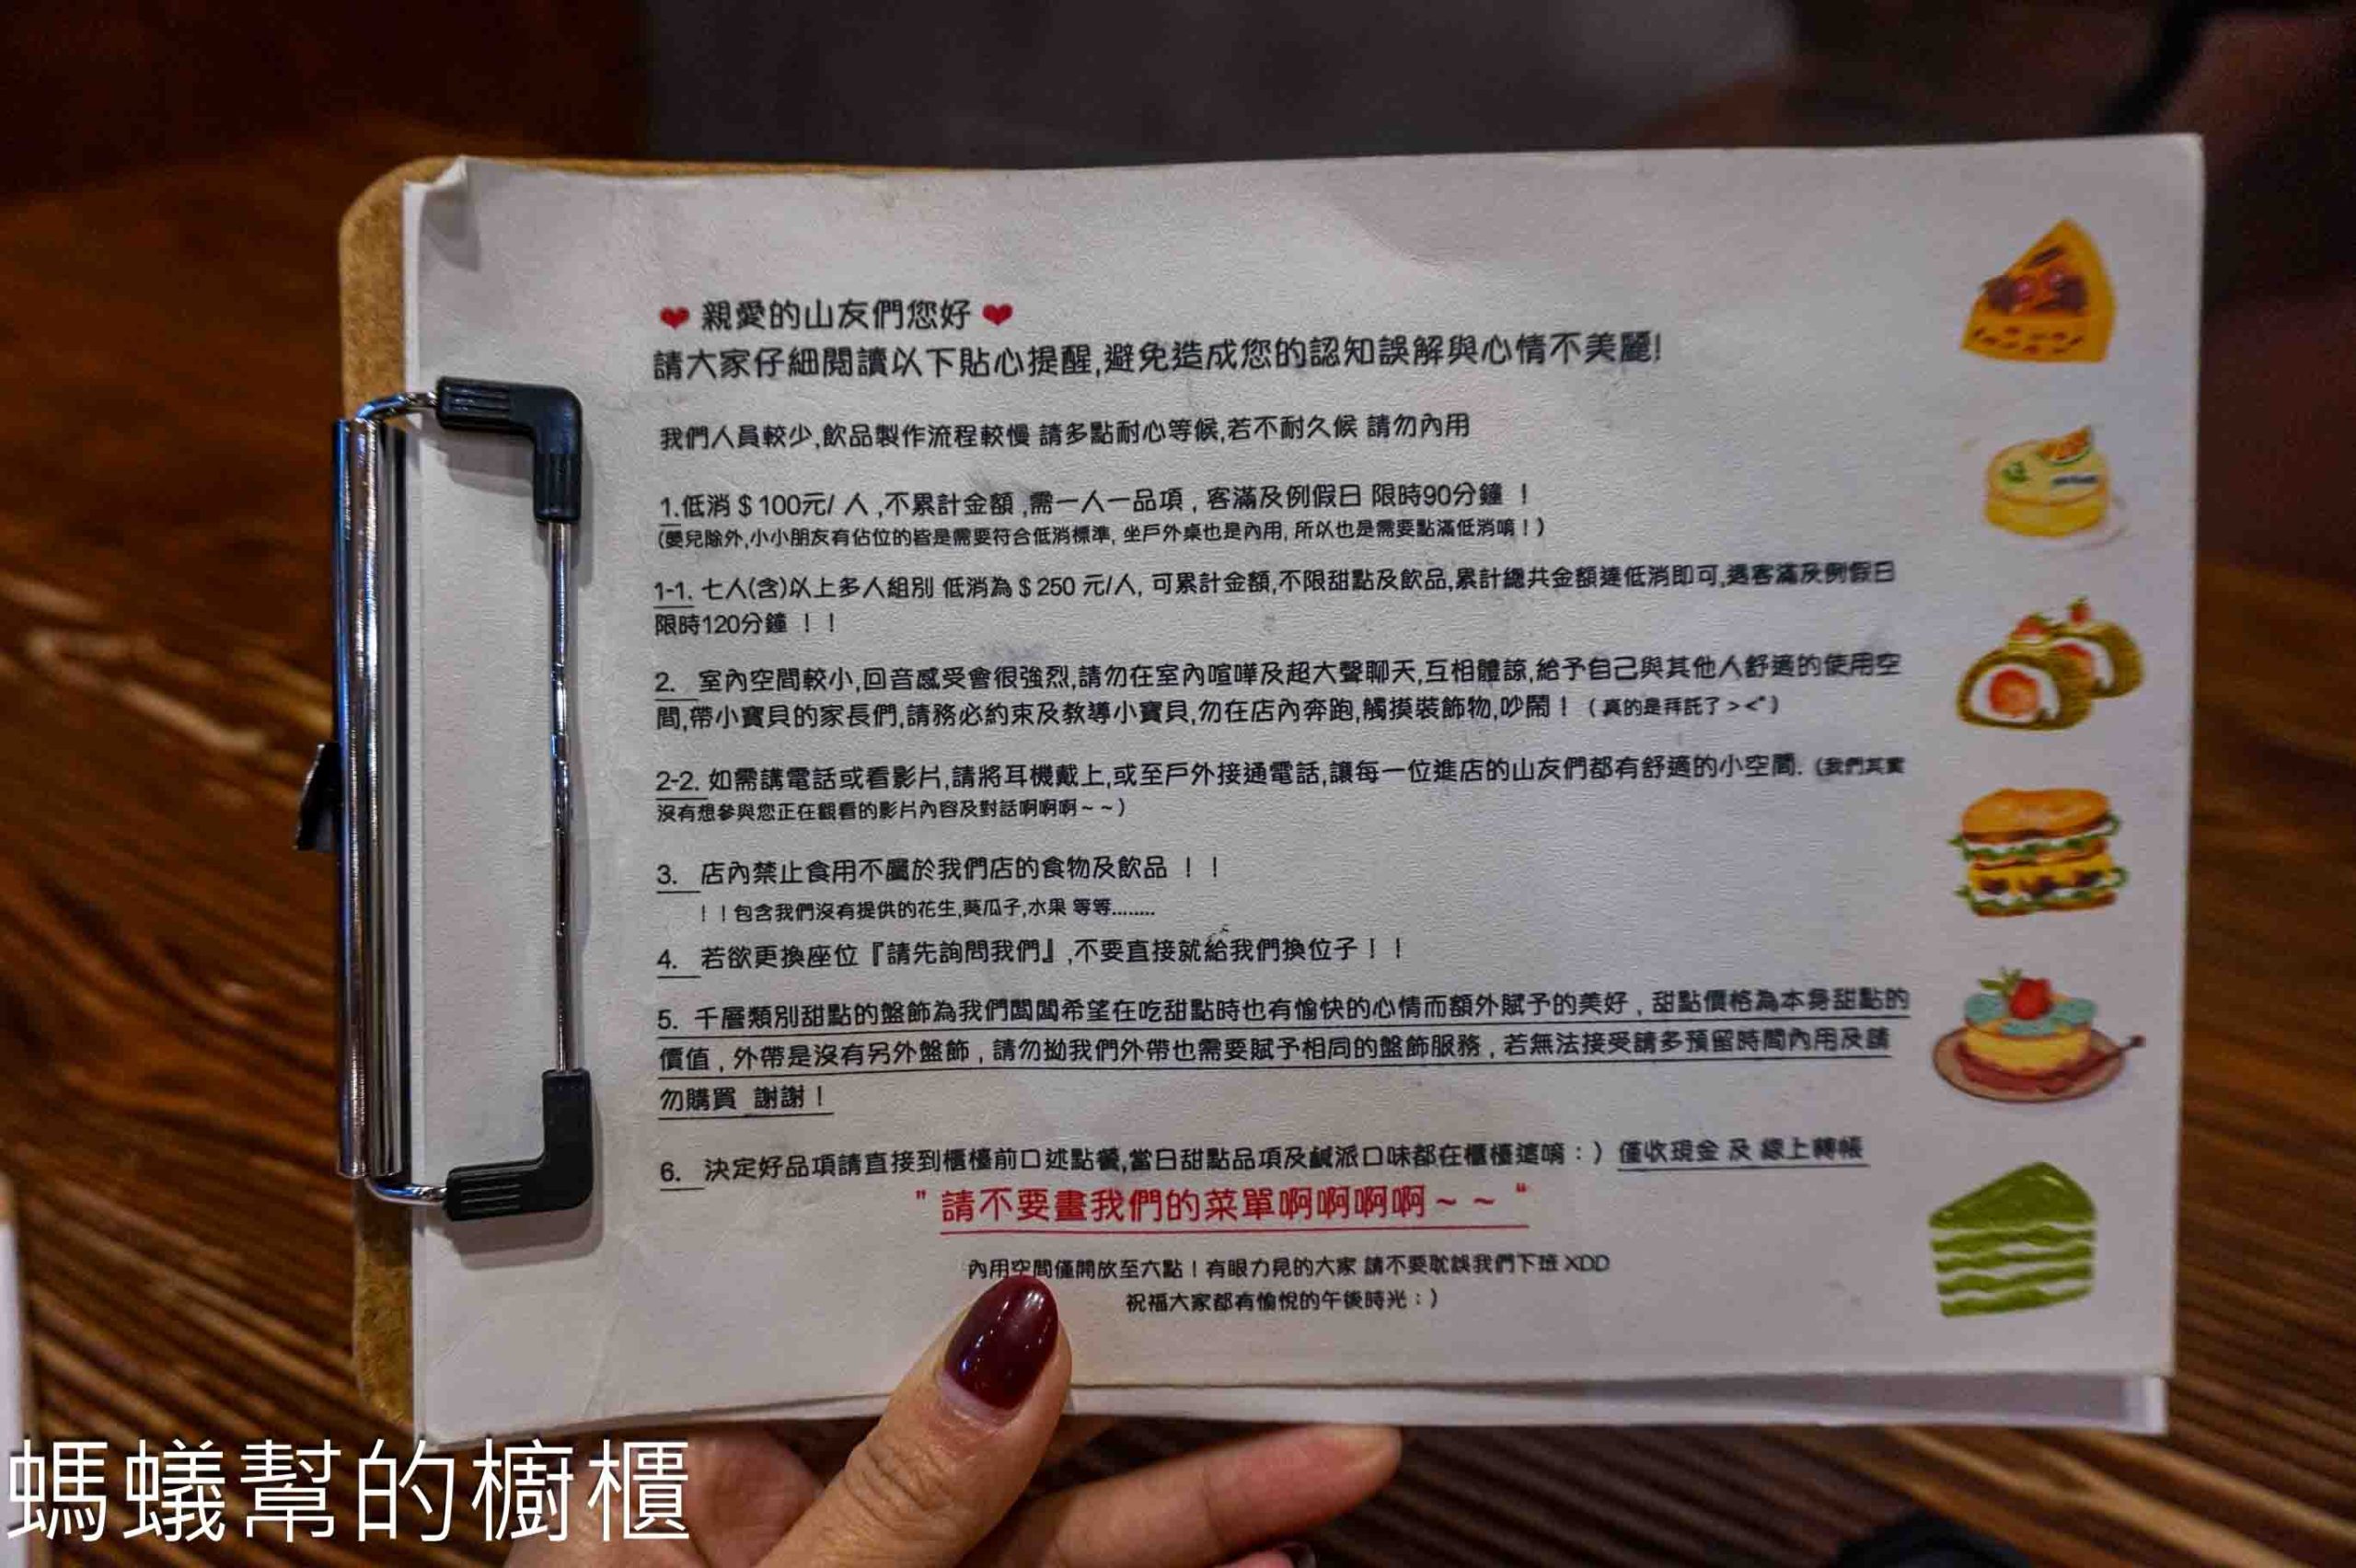 ❤ 親愛的山友們您好 ❤
請大家仔細閱讀以下貼心提醒,避免造成您的認知誤解與心情不美麗!
我們人員較少,飲品製作流程較慢 請多點耐心等候,若不耐久候 請勿內用
1.低消＄100元/ 人 ,不累計金額 ,需一人一品項 , 客滿及例假日 限時90分鐘 ！
(嬰兒除外,小小朋友有佔位的皆是需要符合低消標準, 坐戶外桌也是內用, 所以也是需要點滿低消唷！)
1-1. 七人(含)以上多人組別 低消為＄250 元/人, 可累計金額,不限甜點及飲品,累計總共金額達低消即可,遇客滿及例假日
限時120分鐘 ！！
2. 室內空間較小,回音感受會很強烈,請勿在室內喧嘩及超大聲聊天,互相體諒,給予自己與其他人舒適的使用空
間,帶小寶貝的家長們,請務必約束及教導小寶貝,勿在店內奔跑,觸摸裝飾物,吵鬧！（真的是拜託了＞＜"）
2-2. 如需講電話或看影片,請將耳機戴上,或至戶外接通電話,讓每一位進店的山友們都有舒適的小空間. (我們其實
沒有想參與您正在觀看的影片內容及對話啊啊啊～～)
3. 店內禁止食用不屬於我們店的食物及飲品 ！！
！！包含我們沒有提供的花生,葵瓜子,水果 等等........
4. 若欲更換座位『請先詢問我們』,不要直接就給我們換位子！！
5. 千層類別甜點的盤飾為我們闆闆希望在吃甜點時也有愉快的心情而額外賦予的美好 , 甜點價格為本身甜點的
價值 , 外帶是沒有另外盤飾 , 請勿拗我們外帶也需要賦予相同的盤飾服務 , 若無法接受請多預留時間內用及請
勿購買 謝謝！
6. 決定好品項請直接到櫃檯前口述點餐,當日甜點品項及鹹派口味都在櫃檯這唷：） 僅收現金 及 線上轉帳
"請不要畫我們的菜單啊啊啊啊～～"
內用空間僅開放至六點！有眼力見的大家 請不要耽誤我們下班 XDD
祝福大家都有愉悅的午後時光：）
螞蟻幫的櫥櫃